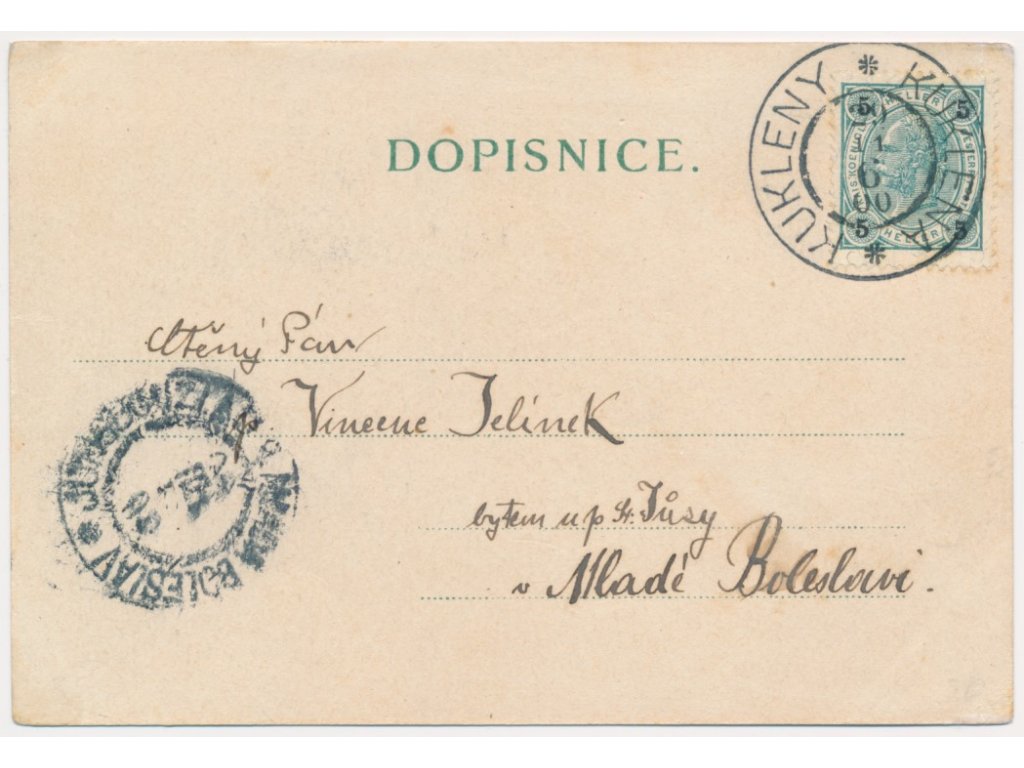 DOPISNICE.
KUKLENY * KUKLENY *
6
00
5 HELLER 5
5 HELLER 5
Ctěný Pán
Vincenc Jelínek
bytem u p. St. Jůzy
v Mladé Boleslavi.
JUNGBUNZLAU
MLADÁ BOLESLAV *